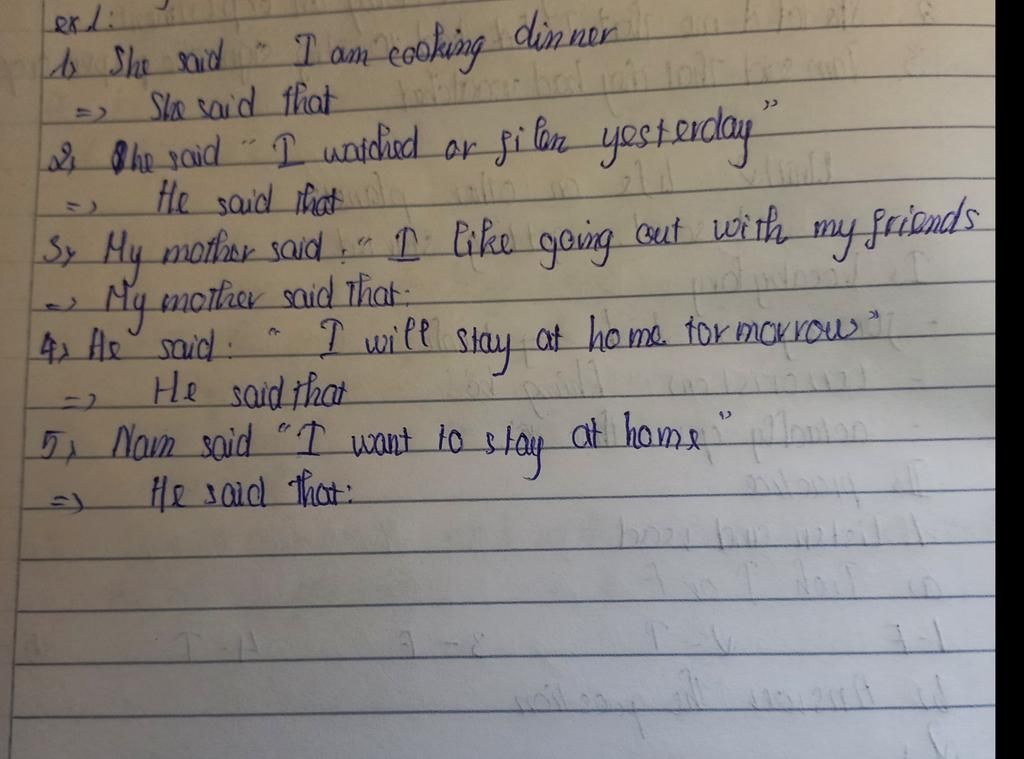 ex 1:
1, She said " I am cooking dinner
=> She said that
2, She said " I watched a film yesterday"
=> He said that
3, My mother said: " I like going out with my friends
=> My mother said that:
4, He said: " I will stay at home tormorrow"
=> He said that
5, Nam said "I want to stay at home"
=> He said that: